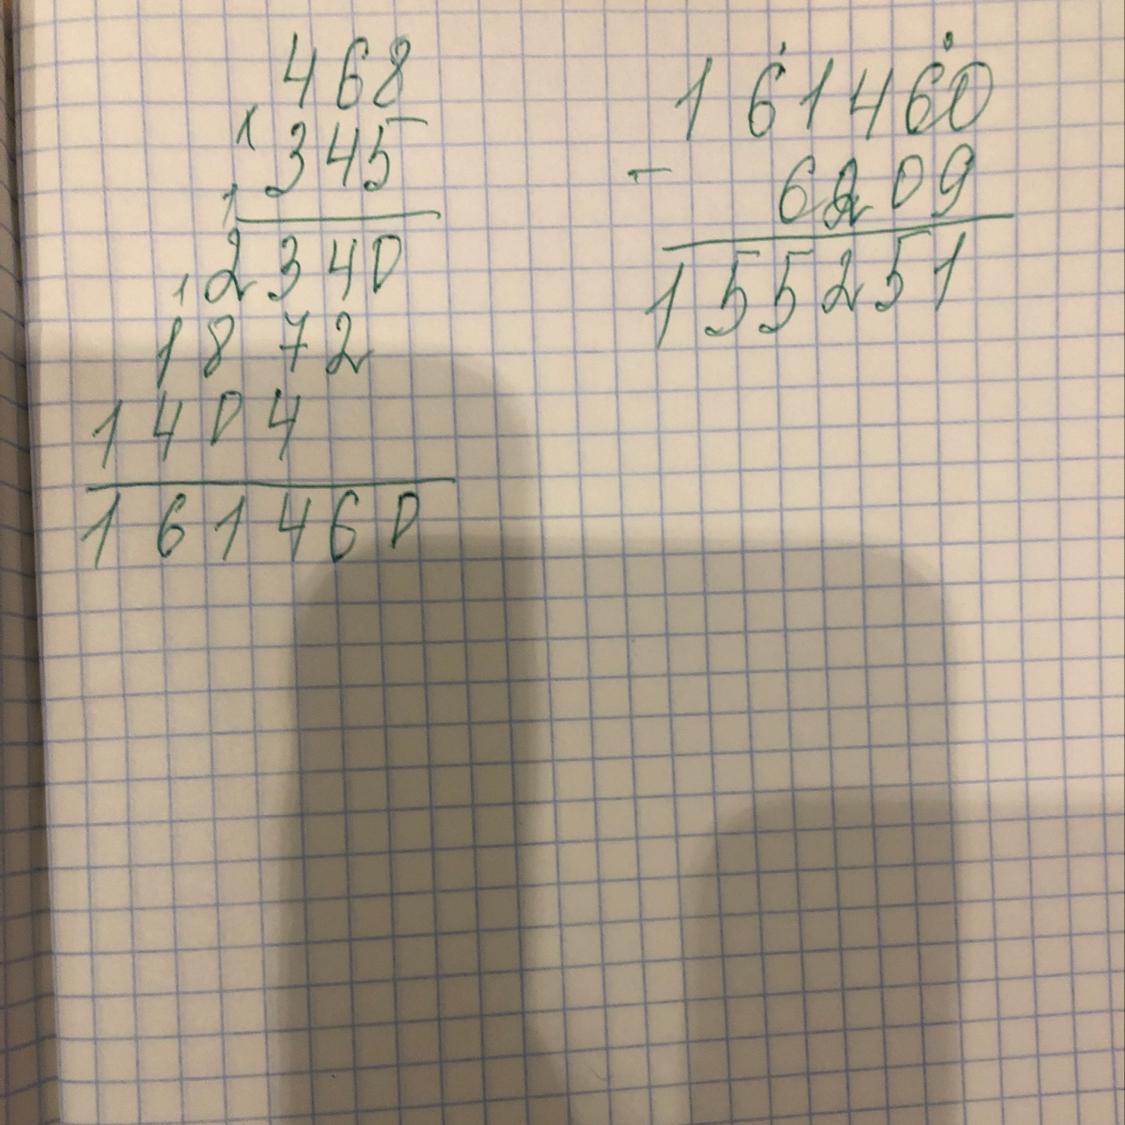 468
× 345
2340
1872
1404
161460
161460
- 6209
155251